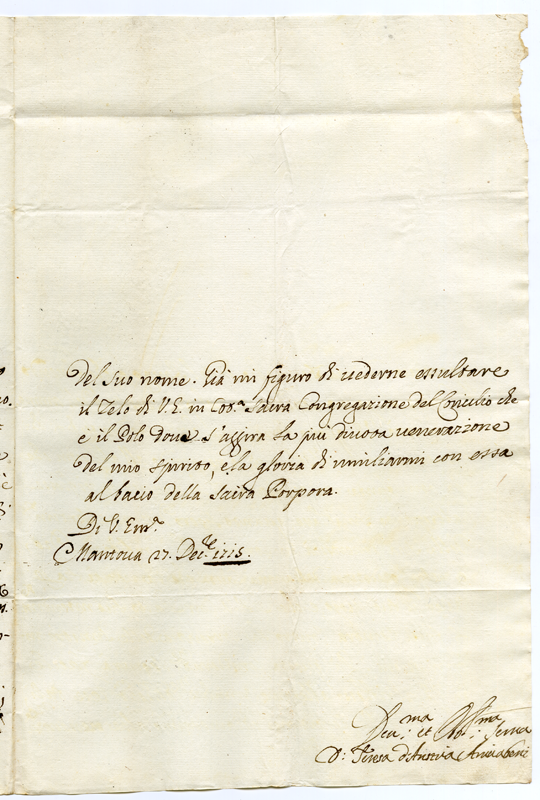 del suo nome. Già mi figuro di uederne essultare
il Zelo di V. E. in cod.ª Sacra Congregazione del Concilio che
è il Polo doue s'aggira la più diuota uenerazione
del mio spirito, e la gloria di umiliarmi con essa
al bacio della Sacra Porpora.
Di V. Em.ª
Mantoua 27. Dec.re 1715.
Deu.ma et Obl.ma Serua
D: Teresa d'